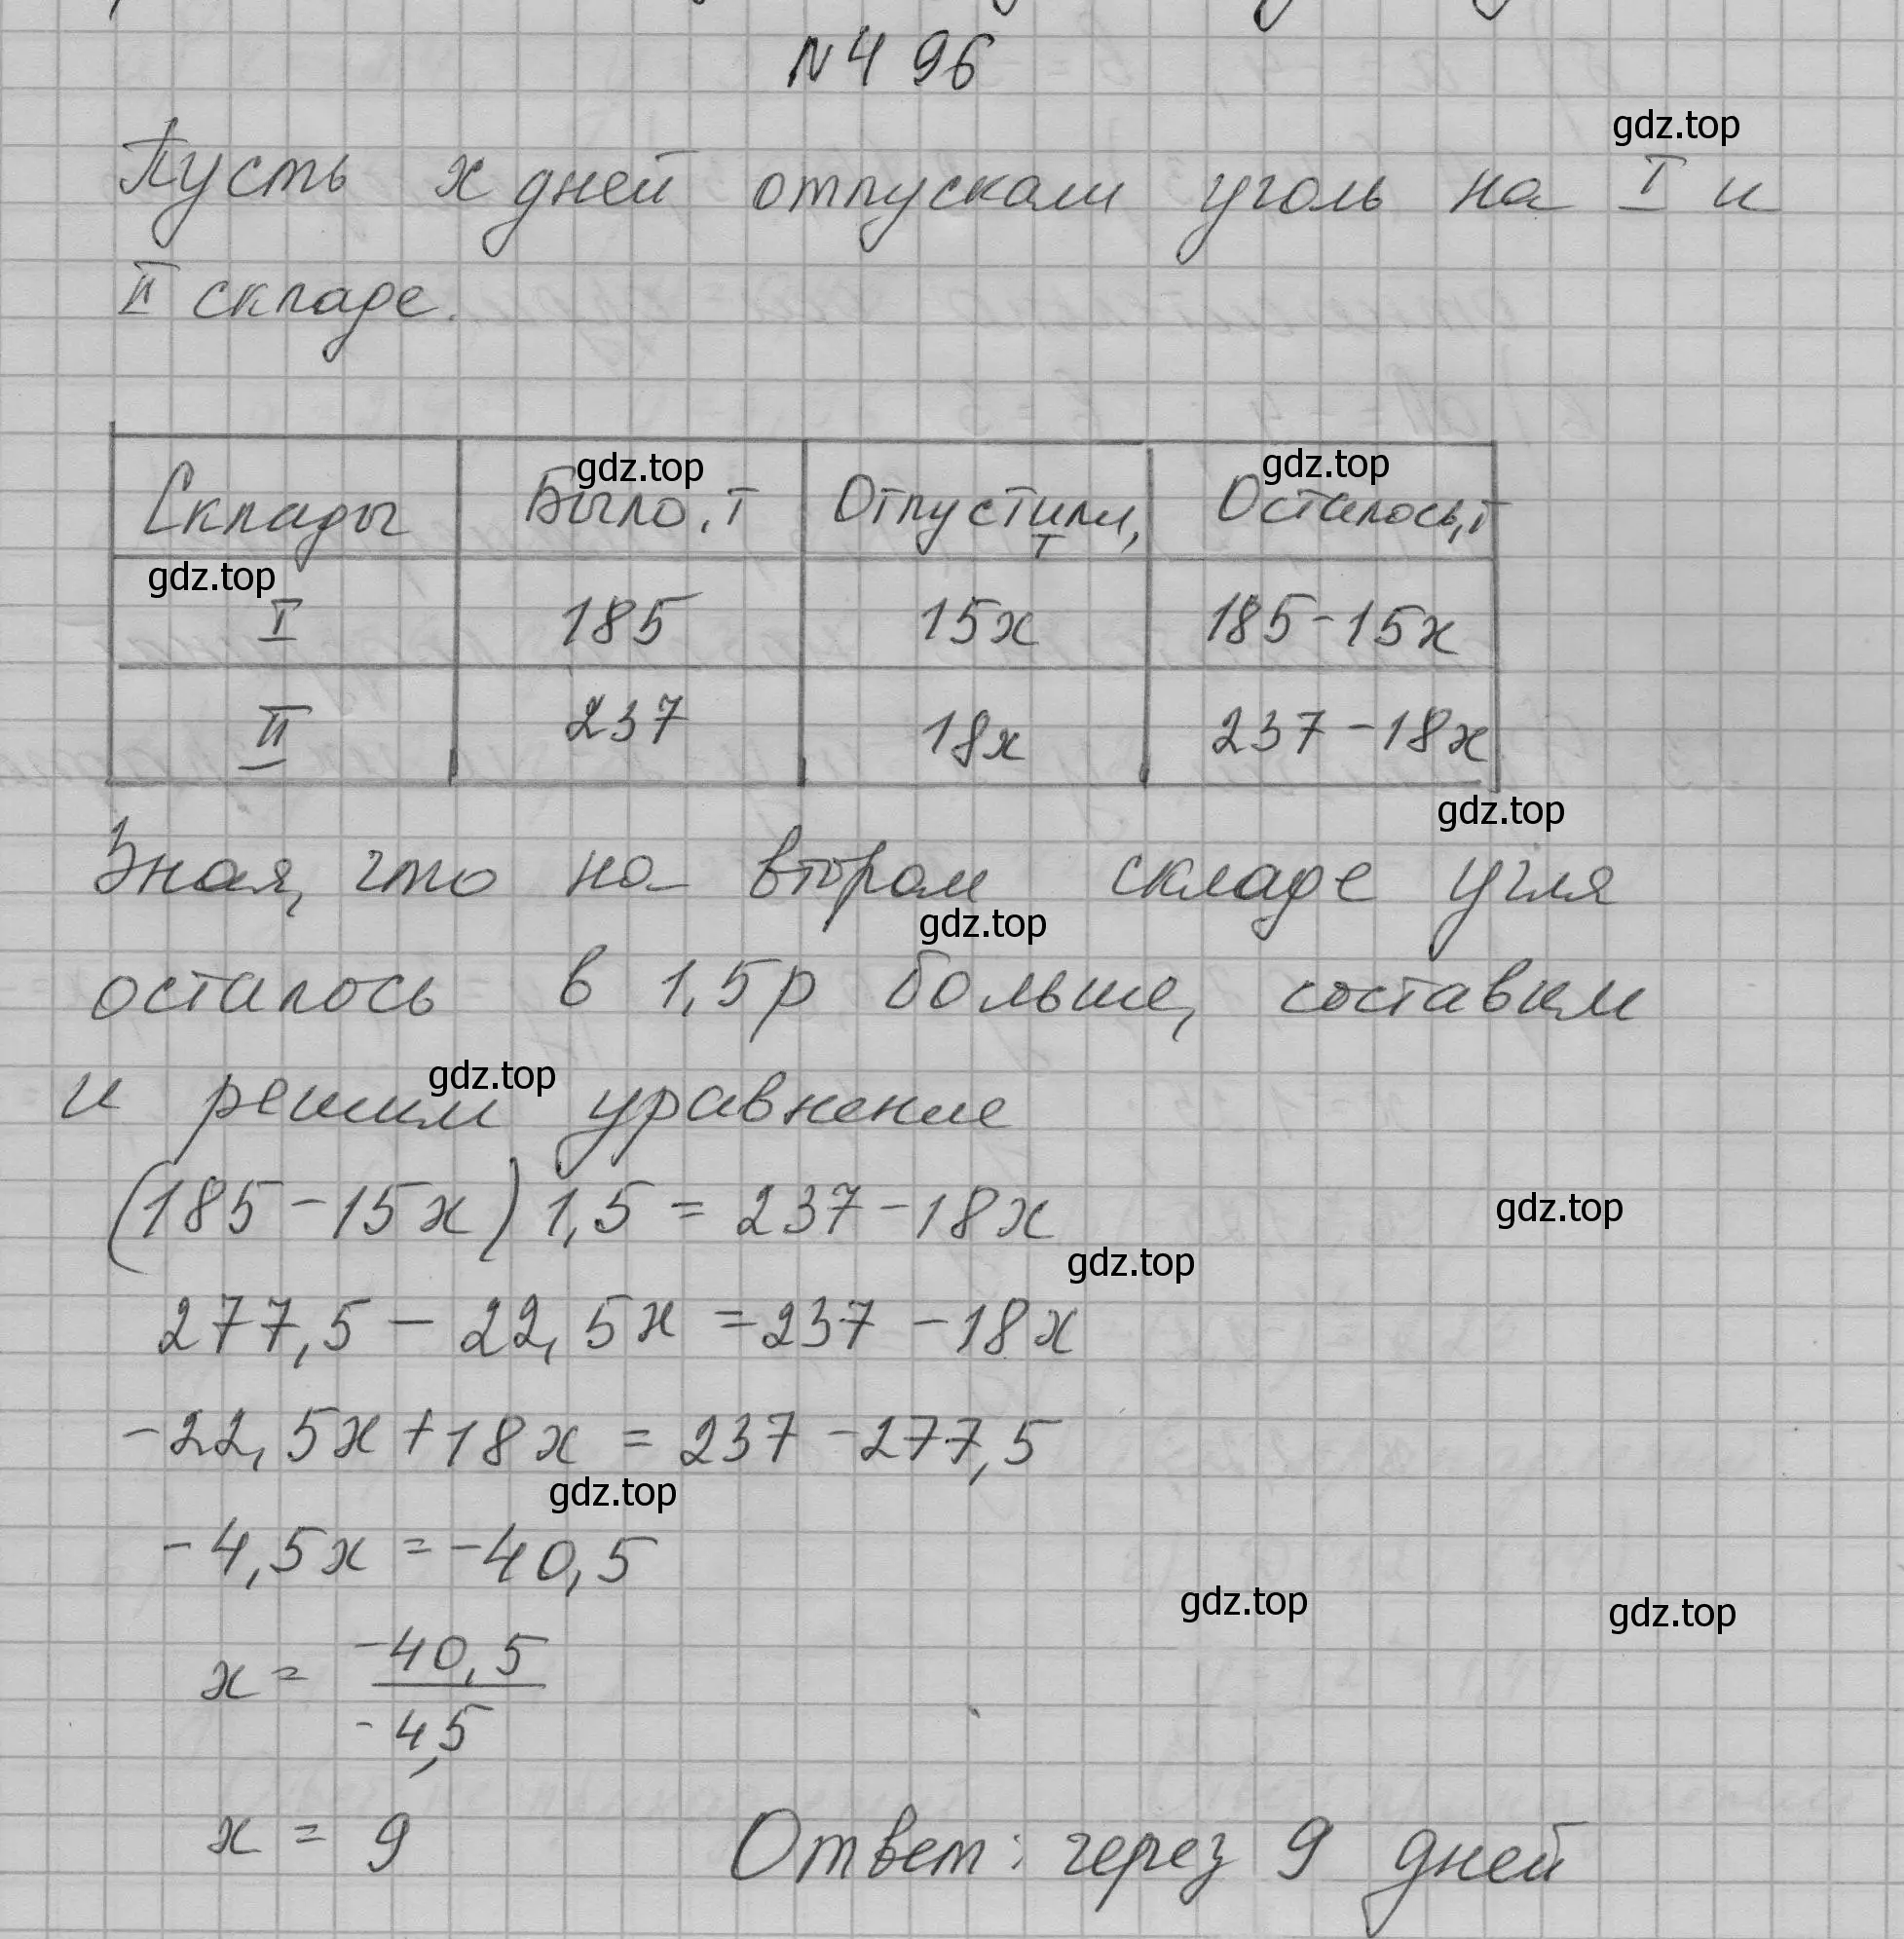 N 496
gdz.top
Пусть x дней отпускали уголь на I и
II складе.
gdz.top gdz.top
Склады Было, т Отпустили, т Осталось, т
gdz.top
I 185 15x 185-15x
II 237 18x 237-18x
gdz.top
Зная, что на втором складе угля
gdz.top
осталось в 1,5 р больше, составим
gdz.top
и решим уравнение
(185-15x) 1,5 = 237-18x
gdz.top
gdz.top
277,5 - 22,5x = 237 - 18x
-22,5x + 18x = 237 - 277,5
gdz.top
-4,5x = -40,5
gdz.top gdz.top
x = -40,5 / -4,5
x = 9 Ответ: через 9 дней